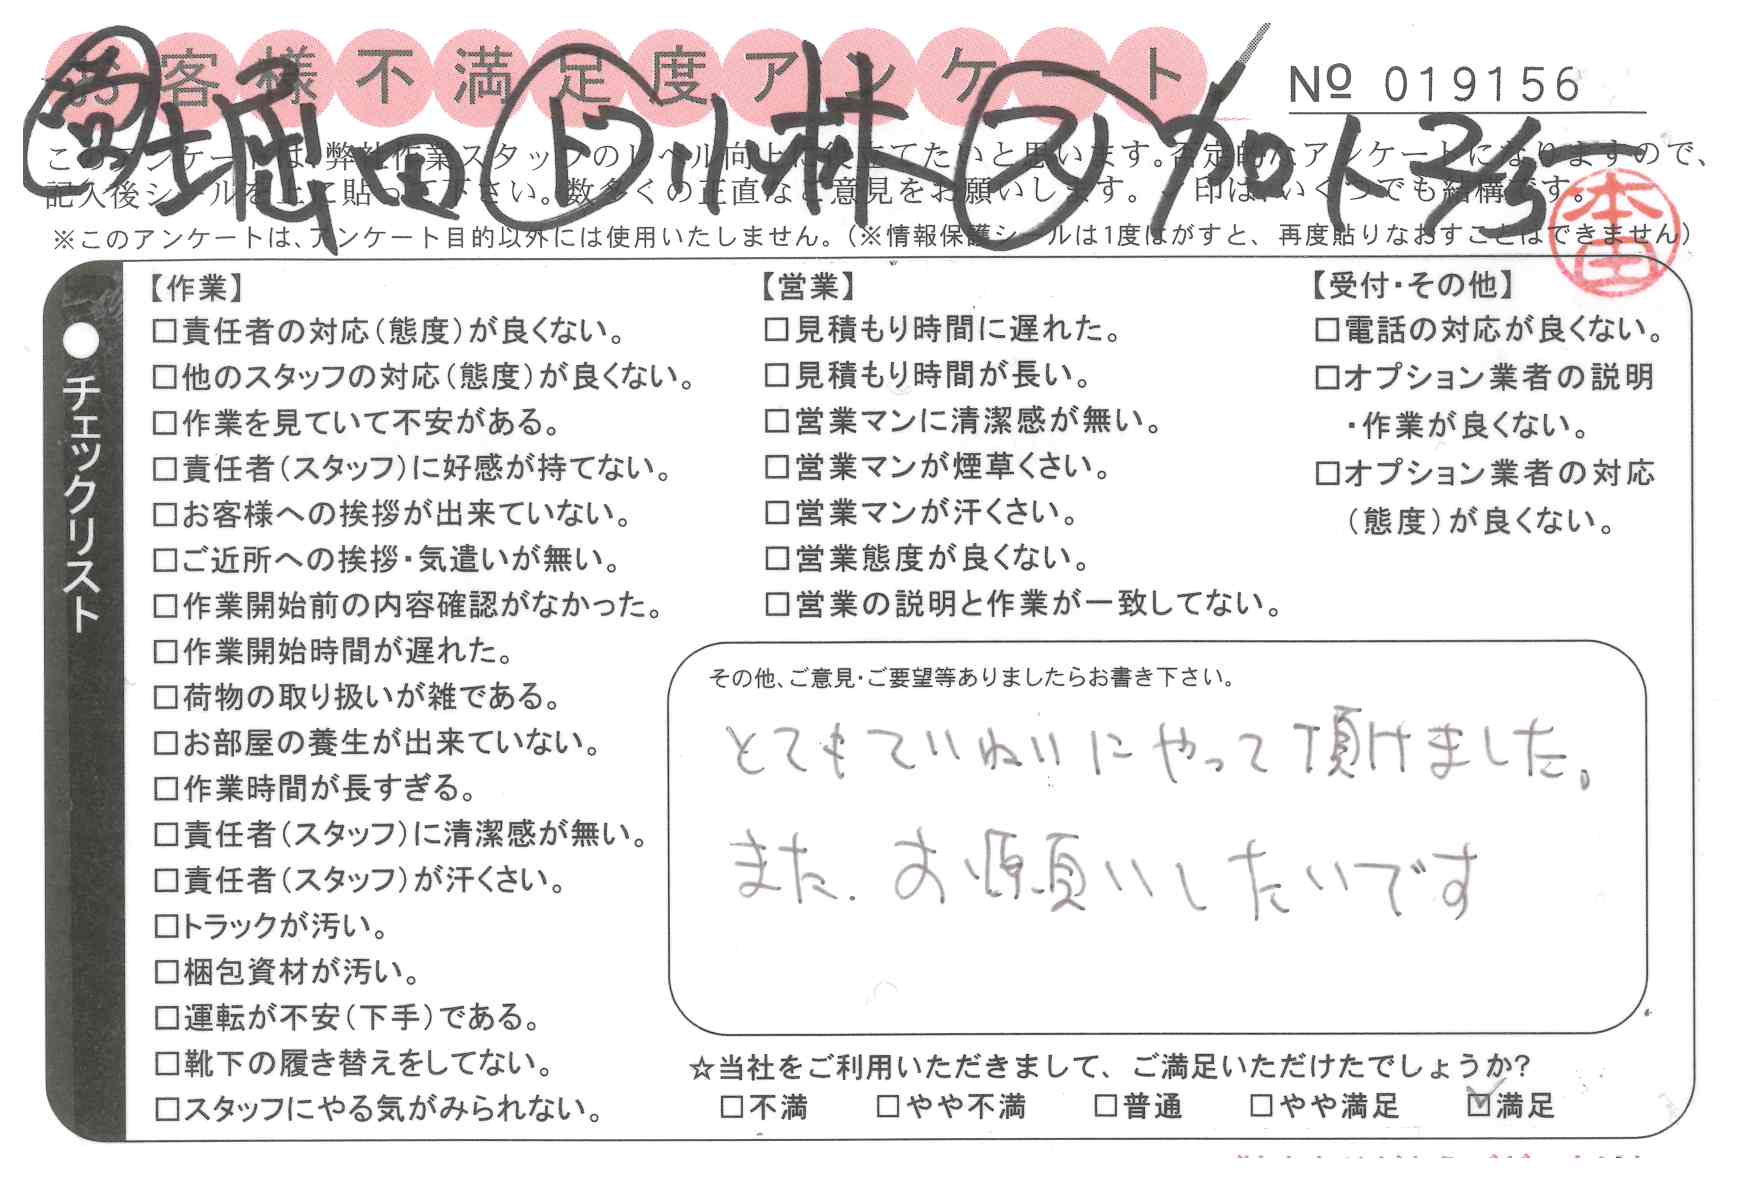 お客様不満足度アンケート
№ 019156
営 堀田 ド 小林 ス 加ト 2/5
このアンケートは、弊社作業スタッフのレベル向上に役立てたいと思います。否定的なアンケートになりますので、
記入後シールを上に貼って下さい。数多くの正直なご意見をお願いします。✓印は、いくつでも結構です。
※このアンケートは、アンケート目的以外には使用いたしません。(※情報保護シールは1度はがすと、再度貼りなおすことはできません)
本田
●チェックリスト
【作業】
□責任者の対応(態度)が良くない。
□他のスタッフの対応(態度)が良くない。
□作業を見ていて不安がある。
□責任者(スタッフ)に好感が持てない。
□お客様への挨拶が出来ていない。
□ご近所への挨拶・気遣いが無い。
□作業開始前の内容確認がなかった。
□作業開始時間が遅れた。
□荷物の取り扱いが雑である。
□お部屋の養生が出来ていない。
□作業時間が長すぎる。
□責任者(スタッフ)に清潔感が無い。
□責任者(スタッフ)が汗くさい。
□トラックが汚い。
□梱包資材が汚い。
□運転が不安(下手)である。
□靴下の履き替えをしてない。
□スタッフにやる気がみられない。
【営業】
□見積もり時間に遅れた。
□見積もり時間が長い。
□営業マンに清潔感が無い。
□営業マンが煙草くさい。
□営業マンが汗くさい。
□営業態度が良くない。
□営業の説明と作業が一致してない。
【受付・その他】
□電話の対応が良くない。
□オプション業者の説明
・作業が良くない。
□オプション業者の対応
(態度)が良くない。
その他、ご意見・ご要望等ありましたらお書き下さい。
とてもていねいにやって頂けました。
また、お願いしたいです
☆当社をご利用いただきまして、ご満足いただけたでしょうか?
□不満 □やや不満 □普通 □やや満足 ☑満足